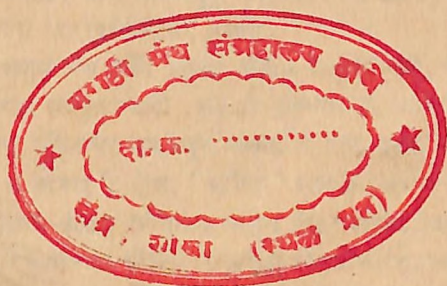 मराठी ग्रंथ संग्रहालय ठाणे
दा. क्र. ............
शाखा (स्थळ प्रत)